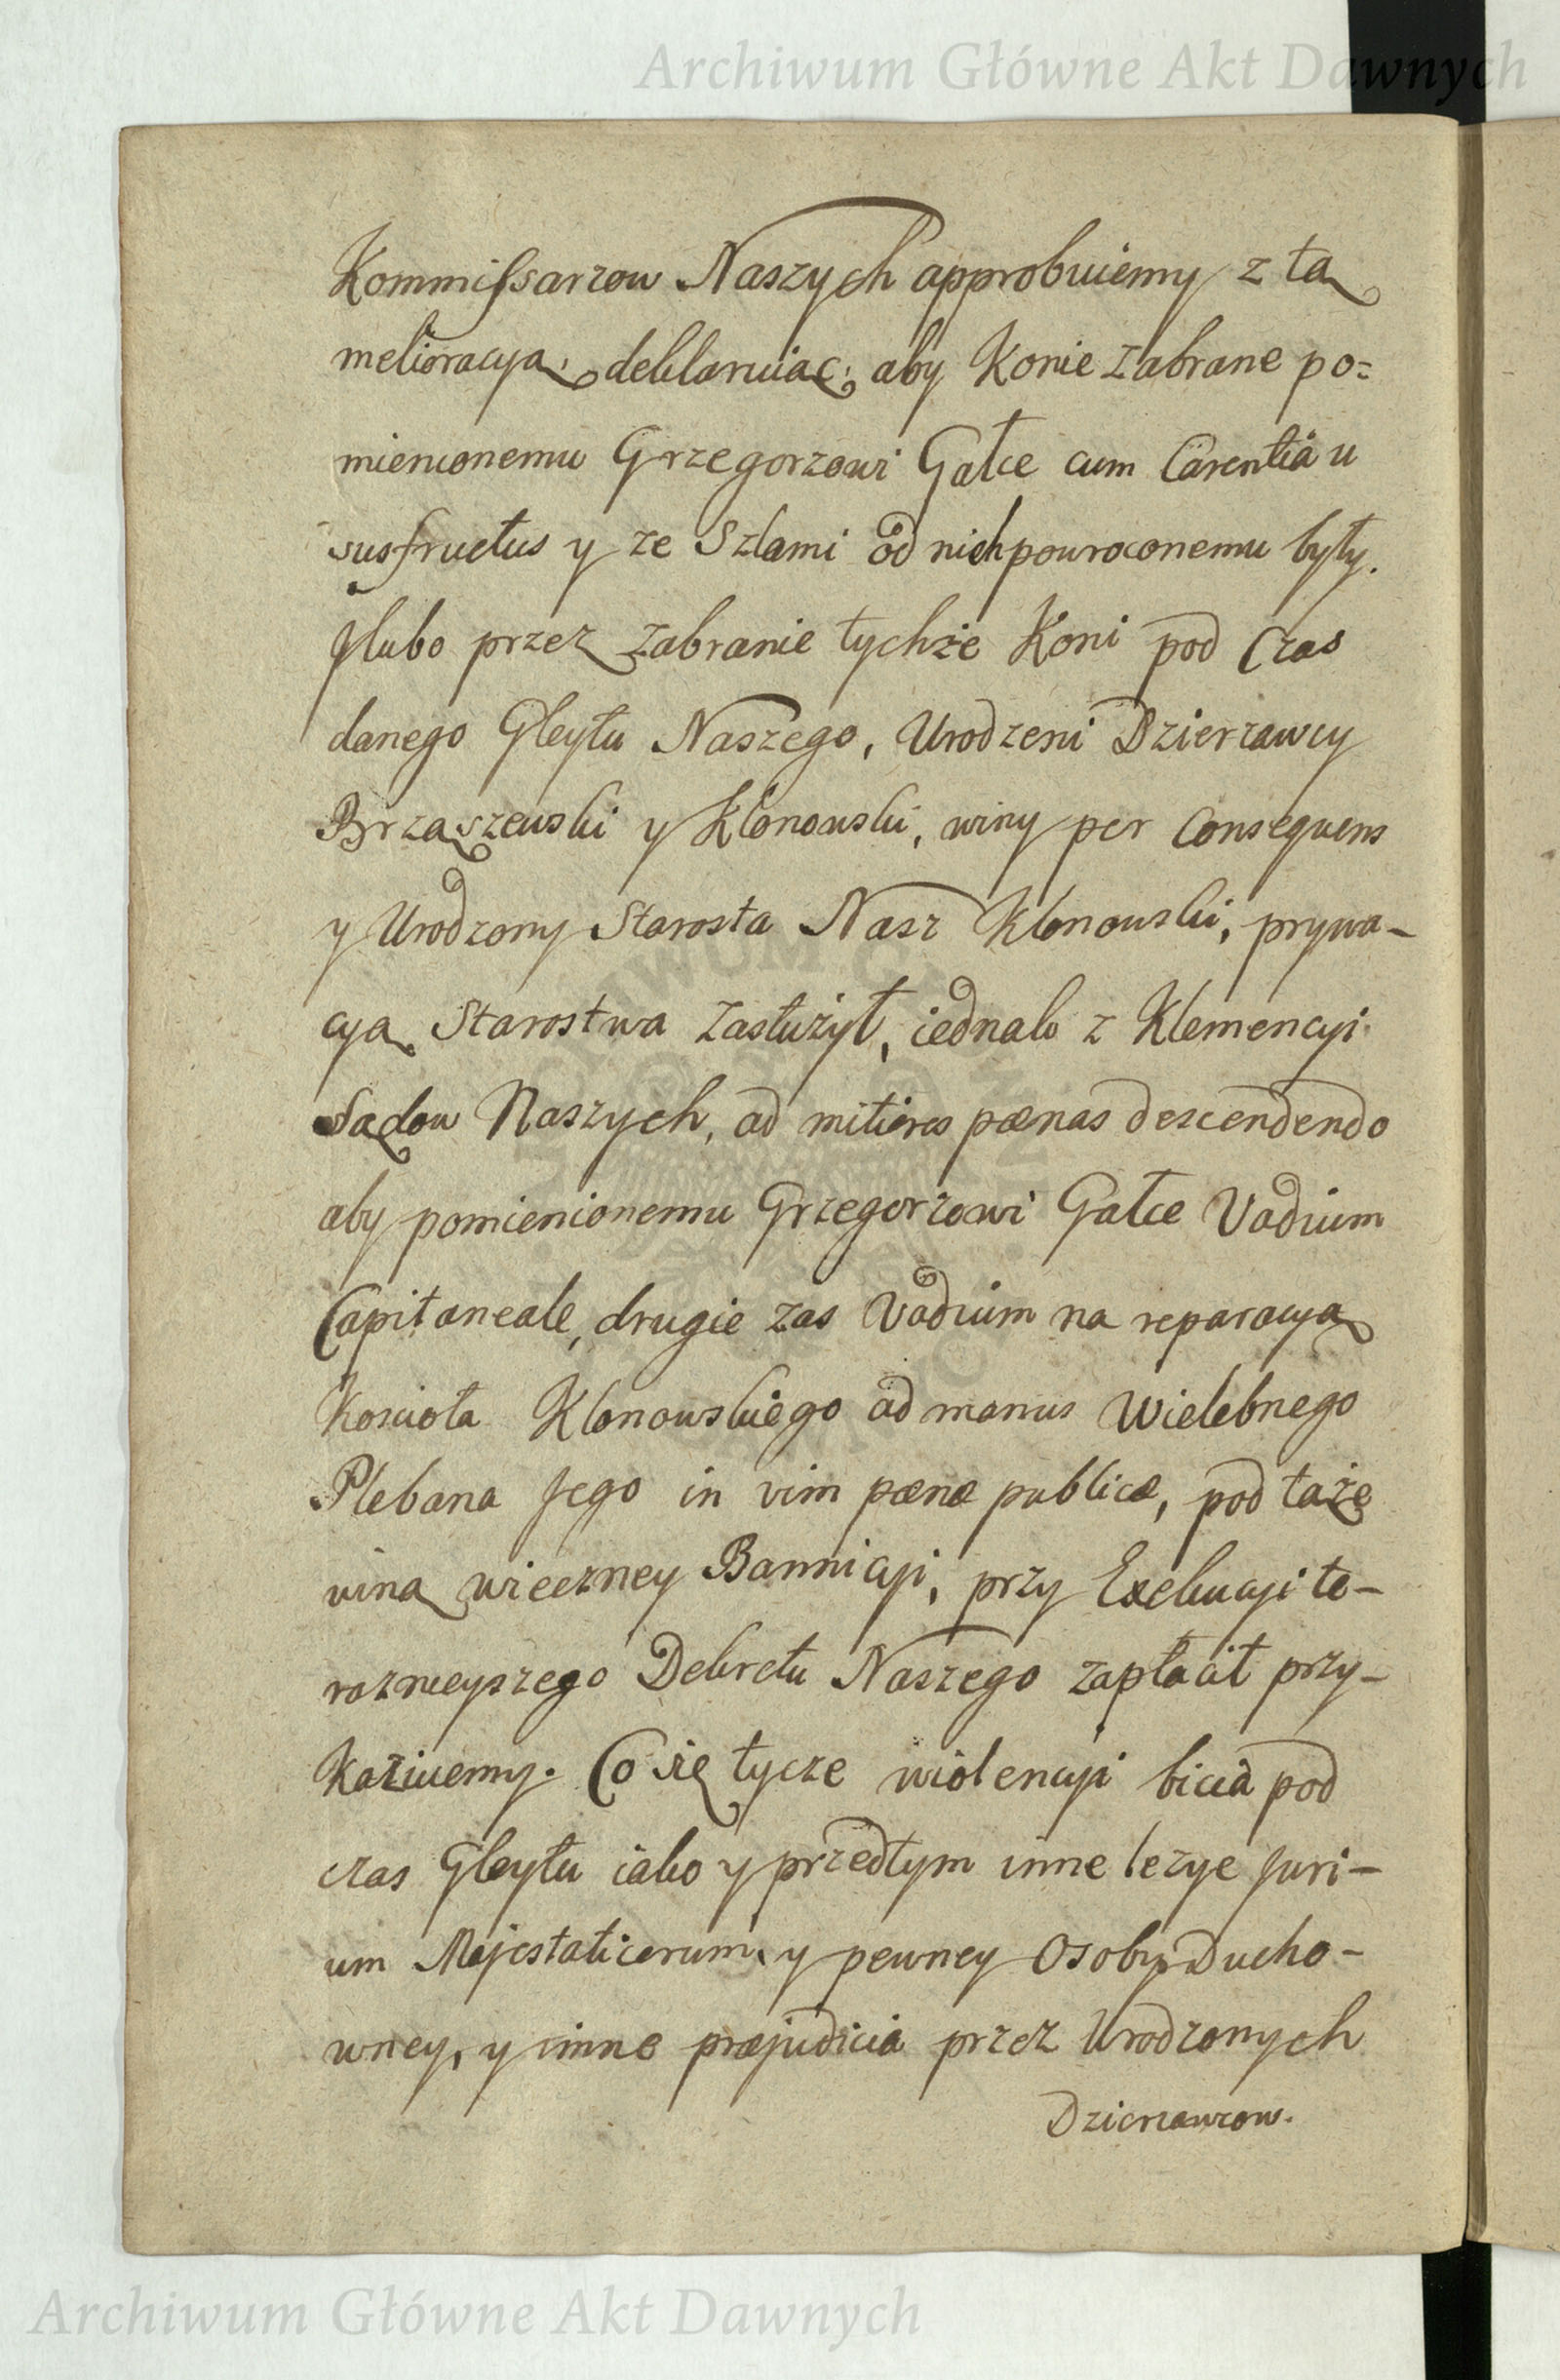 Archiwum Główne Akt Dawnych
Kommissarzow Naszych approbuiemy z tą
melioracyą, deklaruiąc, aby Konie zabrane po=
mienionemu Grzegorzowi Gałce cum Carentia u
susfructus y ze Szlami od nich powroconemu były.
Jlubo przez zabranie tychże Koni pod Czas
danego Gleytu Naszego, Urodzeni Dzierzawcy
Brząszewski y Klonowski, winy per Consequens
y Urodzony Starosta Nasz Klonowski, prywa-
cyą Starostwa zasłużył, iednak z Klemencyi
Sądow Naszych, ad mitiores pœnas descendendo
aby pomienionemu Grzegorzowi Gałce Vadium
Capitaneale, drugie zas Vadium na reparacyą
Koscioła Klonowskiego ad manus Wielebnego
Plebana Jego in vim pœnæ publicæ, pod tąże
winą wieczney Bannicyi, przy Exekucyi te-
raznieyszego Dekretu Naszego zapłacił przy-
kazuiemy. Co się tycze wiolencyi bicia pod
czas Gleytu iako y przedtym inne lezye Juri-
um Majestaticorum, y pewney Osoby Ducho-
wney, y inne præjudicia przez Urodzonych
Dzierzawcow.
Archiwum Główne Akt Dawnych